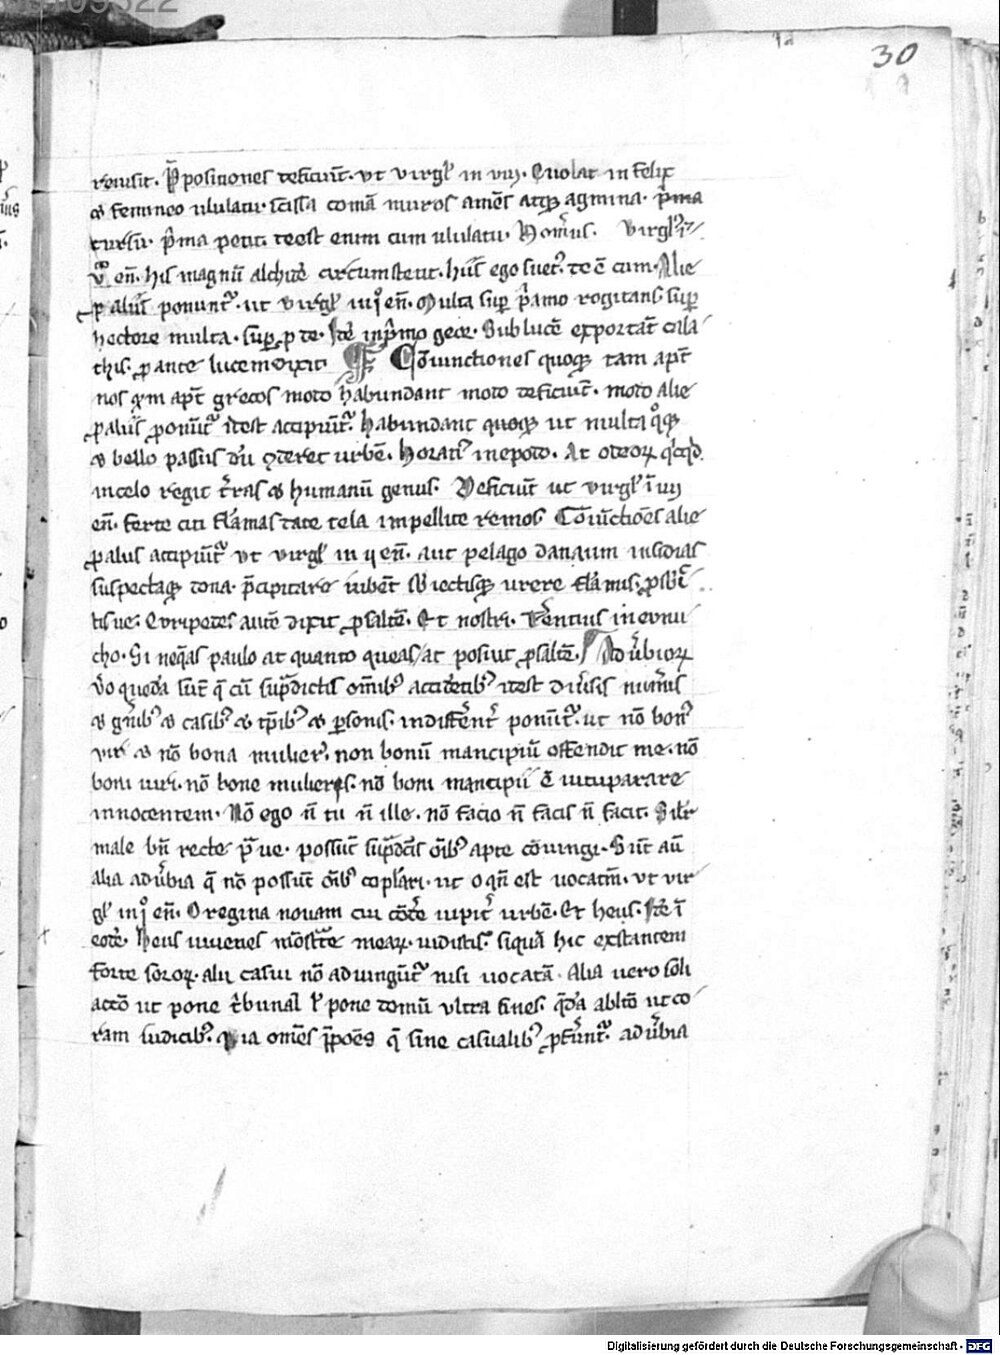 30
reiusit. P̄positiones deficiūt. ut virgł in viij. Euolat infelix
& femineo ululatu. scissa comā muros amēs atqꝫ agmina. p̄ma
cursu. p̄ma petit. deest enim cum ululatu. virgł⁹ ī
v̊ en̄. his magnū alchidē circumstetit. hijs ego suet⁹. deē cum. Alie
ꝑ alijs ponuntᷣ. ut virgł iiij̊ en̄. Multa suꝑ p̄amo rogitans suꝑ
hectore multa. suꝑ ꝓ de. Itē in p̄mo geor. Sub lucē exportāt cala
this. ꝓ ante lucem dixit Cōiunctiones quoqꝫ tam apt̄
nos qͣm apt̄ grecos modo habundant modo deficiūt. modo alie
ꝓ alijs ponūtᷣ idest accipiūtᷣ. habundant quoqꝫ ut multa qͦqꝫ
& bello passus dū ꝯderet urbē. horat⁹ in epodo. At o deorꝫ qͥcqͥd
in celo regit t̄ras & humanū genus. Deficiūt ut virgł ī iiij
en̄. ferte citi flāmas date tela impellite remos. Cōiūctiōes alie
ꝓ alijs accipiūtᷣ ut virgł in ij en̄. aut pelago danaum insidias
suspectaqꝫ dona. p̄cipitare iubēt sb̄iectisqꝫ urere flāmis. ꝓ sb̄iec
tisue. Euripedes autē dixit ꝓ saltē. Et nostri. terentius in eunu
cho. Si neqͣs paulo at quanto queas. at posiut ꝓ saltē. Aduerbiorꝫ
v̊o quedā sūt q̄ cū sup̄dictis om̄ibꝫ accidētibꝫ idest diu̾sis num̾is
& gn̄ibꝫ & casibꝫ & tp̄ibꝫ & ꝑsonis indiffēnt̾ ponūtᷣ. ut nō bon⁹
vir & nō bona mulier. non bonū mancipiū offendit me. nō
boni viri. nō bone mulieres. nō boni mancipij ē vituparare
innocentem. Nō ego n̄ tu n̄ ille. nō facio n̄ facis n̄ facit. Silr̄
male bn̄ recte p̄ue. possūt sup̄dc̄is ōibꝫ apte cōiungi. Sūt aū
alia adu̾bia q̄ nō possūt ōibꝫ copłari. ut o qn̄ est uocatiu̅. ut vir
gł in j̊ en̄. O regina nouam cui cōdē iupit̾ urbē. Et heus. Itē ī
eodē. Heus iuuenes mōstrate mearꝫ. uidistis siquā hic exstantem
forte sororꝫ. alij casui nō adiungūtᷣ nisi uocatiō. Alia uero soli
actō ut pone t̄bunal ł pone domū ultra fines. qͣdā abltō ut co
ram iudicibꝫ. Quia omēs p̄poēs q̄ sine casualibꝫ ꝓferūntᷣ. adu̾bia
Digitalisierung gefördert durch die Deutsche Forschungsgemeinschaft - DFG